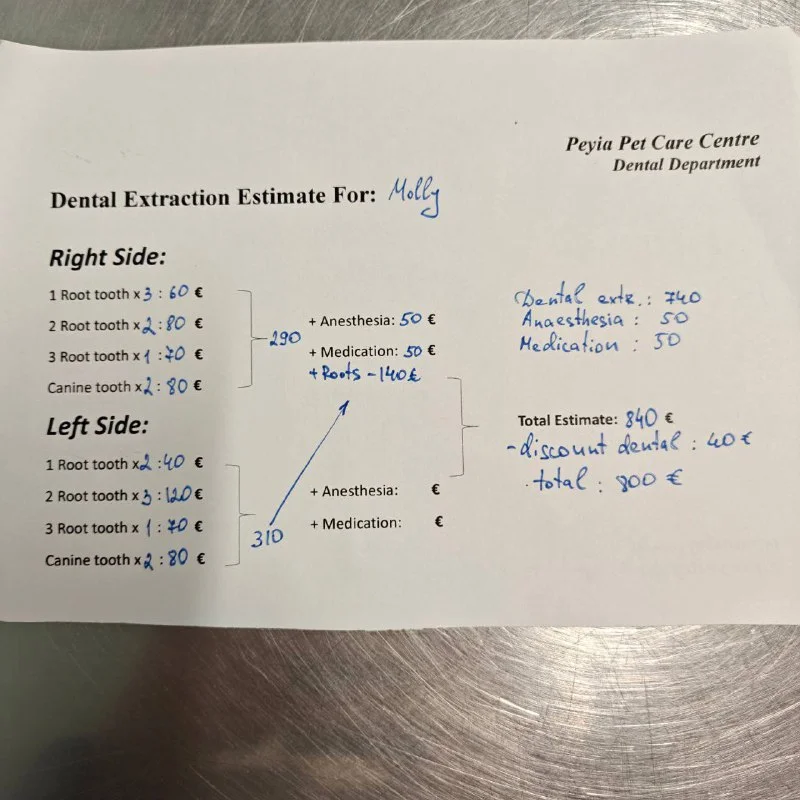 Peyia Pet Care Centre
Dental Department
Dental Extraction Estimate For: Molly
Right Side:
1 Root tooth x 3 : 60 €
2 Root tooth x 2 : 80 €
3 Root tooth x 1 : 70 €
Canine tooth x 2 : 80 €
290
+ Anesthesia: 50 €
+ Medication: 50 €
+ Roots - 140 €
Left Side:
1 Root tooth x 2 : 40 €
2 Root tooth x 3 : 120 €
3 Root tooth x 1 : 70 €
Canine tooth x 2 : 80 €
310
+ Anesthesia: €
+ Medication: €
Dental extr. : 740
Anaesthesia : 50
Medication : 50
Total Estimate: 840 €
- discount dental : 40 €
total : 800 €